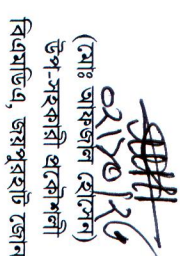 ০২/১০/২৫
(মোঃ আফজাল হোসেন)
উপ-সহকারী প্রকৌশলী
বিএমডিএ, জয়পুরহাট জোন